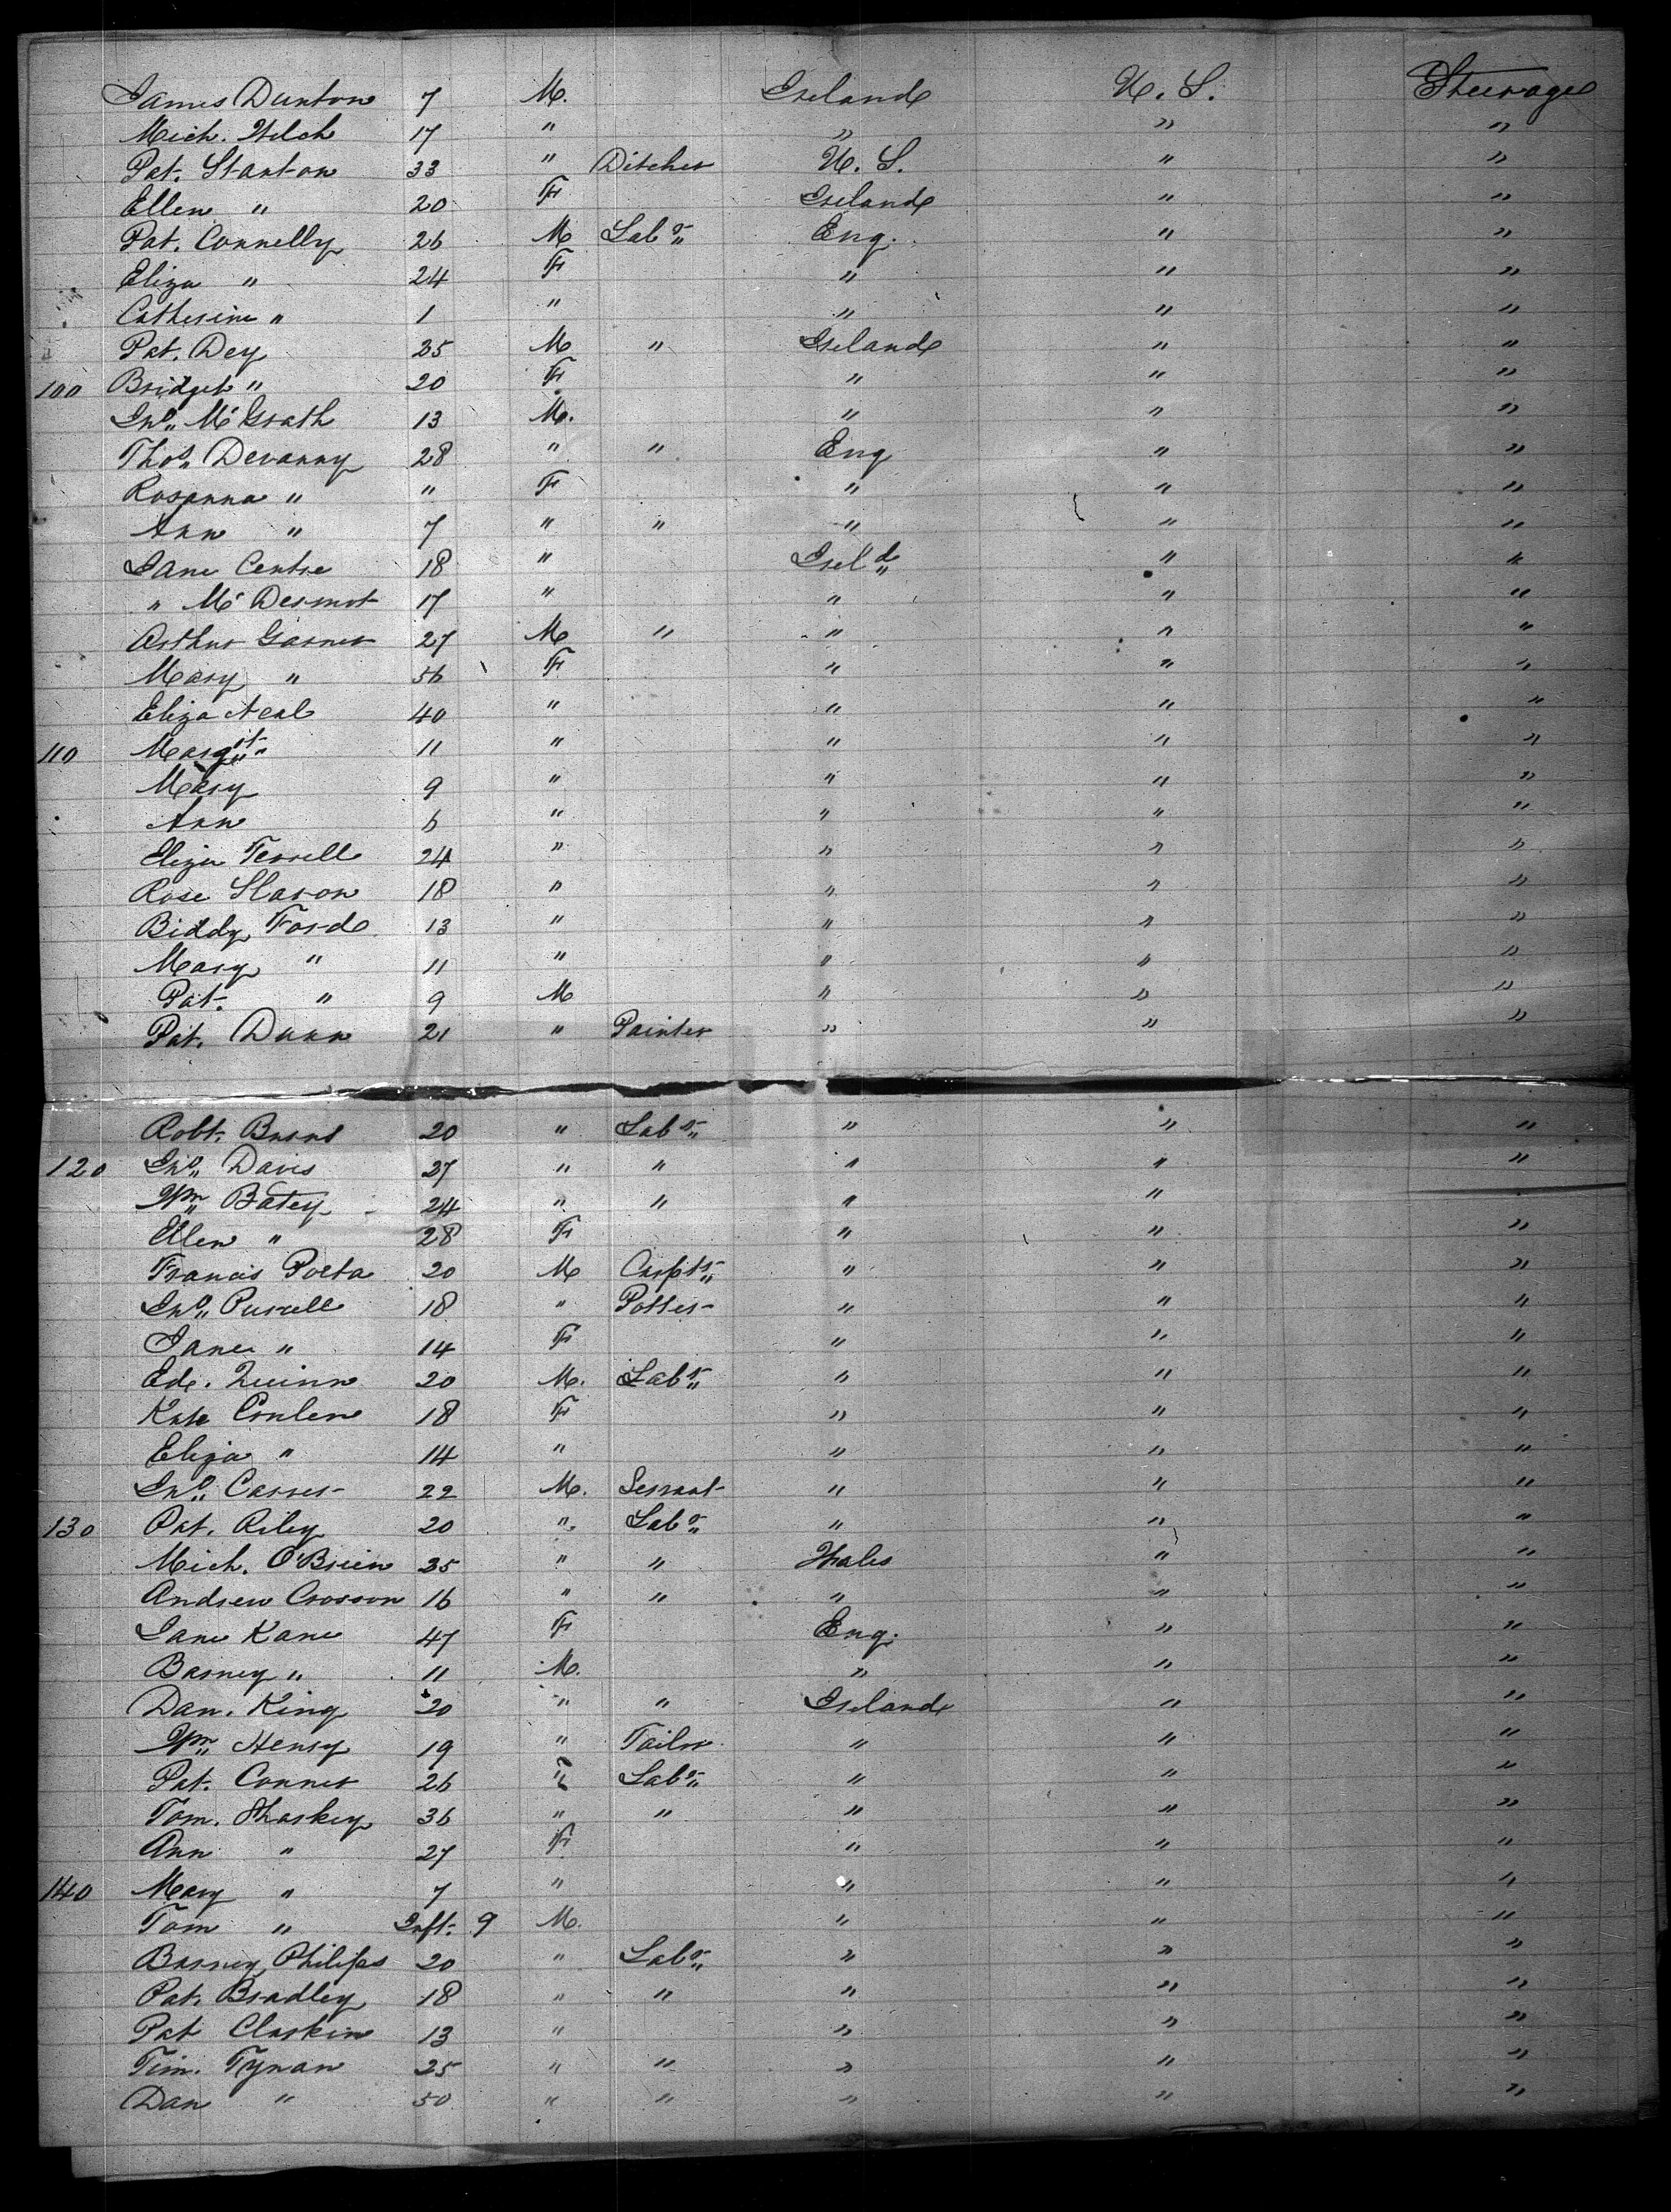 James Dunton 7 M. Ireland U. S. Steerage
Mich. Welch 17 " " " "
Pat. Stanton 33 " Ditcher U. S. " "
Ellen " 20 F Ireland " "
Pat. Connelly 26 M Labr Eng. " "
Eliza " 24 F " " "
Catherine " 1 " " " "
Pat. Dey 25 M " Ireland " "
100 Bridget " 20 F " " "
Jno McGrath 13 M. " " "
Thos Devanny 28 " " Eng " "
Rosanna " " F " " "
Ann " 7 " " " " "
Jane Centre 18 " Ireld " "
" McDermot 17 " " " "
Arthur Garner 27 M " " " "
Mary " 56 F " " "
Eliza Neal 40 " " " "
110 Margit " 11 " " " "
Mary 9 " " " "
Ann 6 " " " "
Eliza Terrell 24 " " " "
Rose Slavon 18 " " " "
Biddy Forde 13 " " " "
Mary " 11 " " " "
Pat. " 9 M " " "
Pat. Dunn 21 " Painter " " "
Robt. Burns 20 " Labr " " "
120 Jno Davis 27 " " " " "
Wm Batey 24 " " " "
Ellen " 28 F " " "
Francis Poeta 20 M Carptr " " "
Jno Purcell 18 " Potter " " "
Jane " 14 F " " "
Ed. Quinn 20 M. Labr " " "
Kate Conlen 18 F " " "
Eliza " 14 " " " "
Jno Carver 22 M. Servant " " "
130 Pat. Riley 20 " Labr " " "
Mich. O'Brien 35 " " Wales " "
Andrew Crosson 16 " " " " "
Jane Kane 47 F Eng. " "
Barney " 11 M. " " "
Dan. King 20 " " Ireland " "
Wm Henry 19 " Tailor " " "
Pat. Conner 26 " Labr " " "
Tom. Sharkey 36 " " " " "
Ann " 27 F " " "
140 Mary " 7 " " " "
Tom " Inft. 9 M. " " "
Barney Philips 20 " Labr " " "
Pat. Bradley 18 " " " " "
Pat Claskin 13 " " " "
Tim. Tynan 25 " " " " "
Dan " 50 " " " " "